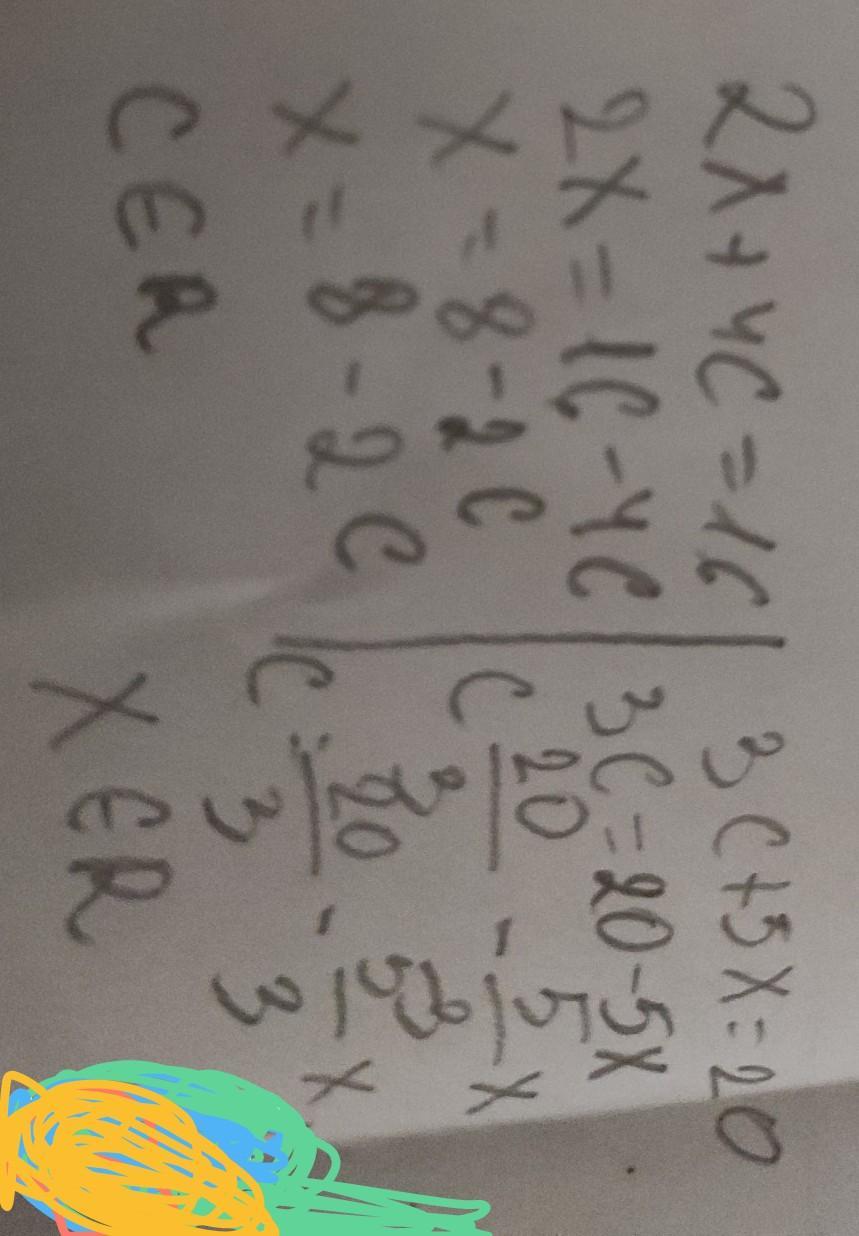 2x+4C=16
2x=16-4C
x=8-2C
x=8-2C
C∈R
3C+5x=20
3C=20-5x
C 20/3 - 5/3 x
C=20/3 - 5/3 x
x∈R